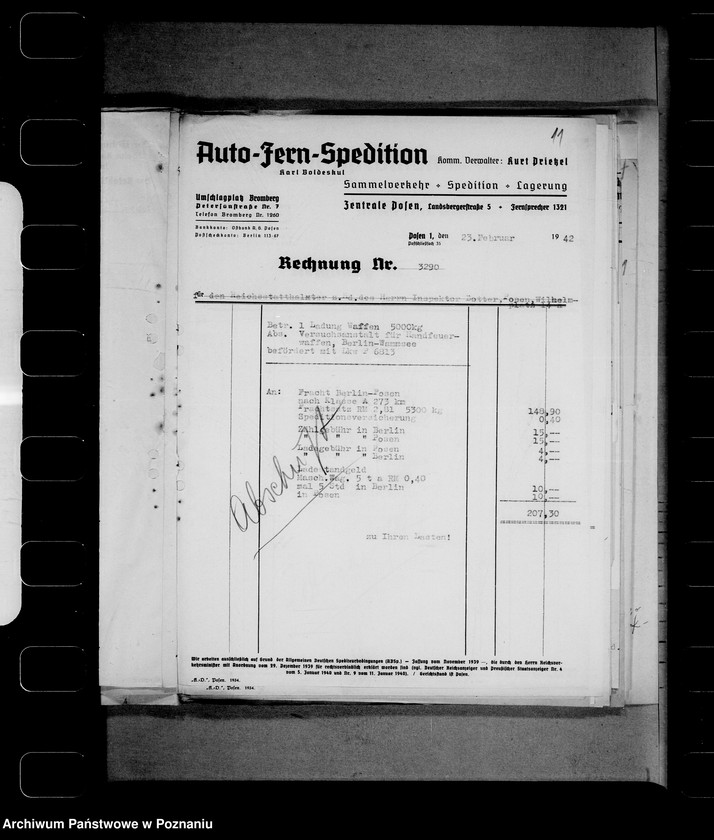 11
Auto-Fern-Spedition Komm. Verwalter: Kurt Prietzel
Karl Boldeskul
Sammelverkehr ∘ Spedition ∘ Lagerung
Umschlagplatz Bromberg
Petersonstraße Nr. 7
Telefon Bromberg Nr. 1960
Zentrale Posen, Landsbergerstraße 5 ∘ Fernsprecher 1321
Bankkonto: Ostbank A.G. Posen
Postscheckkonto: Berlin 113 47
Posen 1, den 23.Februar 1942
Postschließfach
Rechnung Nr. 3290
für den Reichsstatthalter z.-d.des Herrn Inspektor Dotter, Posen, Wilhelm-
Betr. 1 Ladung Waffen 5000kg
Abs. Versuchsanstalt für Handfeuer-
waffen, Berlin-Wannsee
befördert mit Lkw P 6813
An: Fracht Berlin-Posen
nach Klasse A 273 km
Frachtsatz RM 2,81 5300 kg 148,90
Speditionsversicherung 0,40
Zählgebühr in Berlin 15,--
" " " Posen 15,--
Ladegebühr in Posen 4,--
" " " Berlin 4,--
Ladestandgeld
Masch.Wag. 5 t a RM 0,40
mal 5 Std in Berlin 10,--
in Posen 10,--
207,30
Abschrift
zu Ihren Lasten!
Wir arbeiten ausschließlich auf Grund der Allgemeinen Deutschen Spediteurbedingungen (ADSp.) — Fassung vom November 1939 —, die durch den Herrn Reichsver-
kehrsminister mit Anordnung vom 29. Dezember 1939 für rechtsverbindlich erklärt worden sind (vgl. Deutscher Reichsanzeiger und Preußischer Staatsanzeiger Nr. 4
vom 5. Januar 1940 und Nr. 9 vom 11. Januar 1940). / Gerichtsstand ist Posen.
„A.-D.", Posen. 1934.
„A.-D.", Posen. 1934.
Archiwum Państwowe w Poznaniu